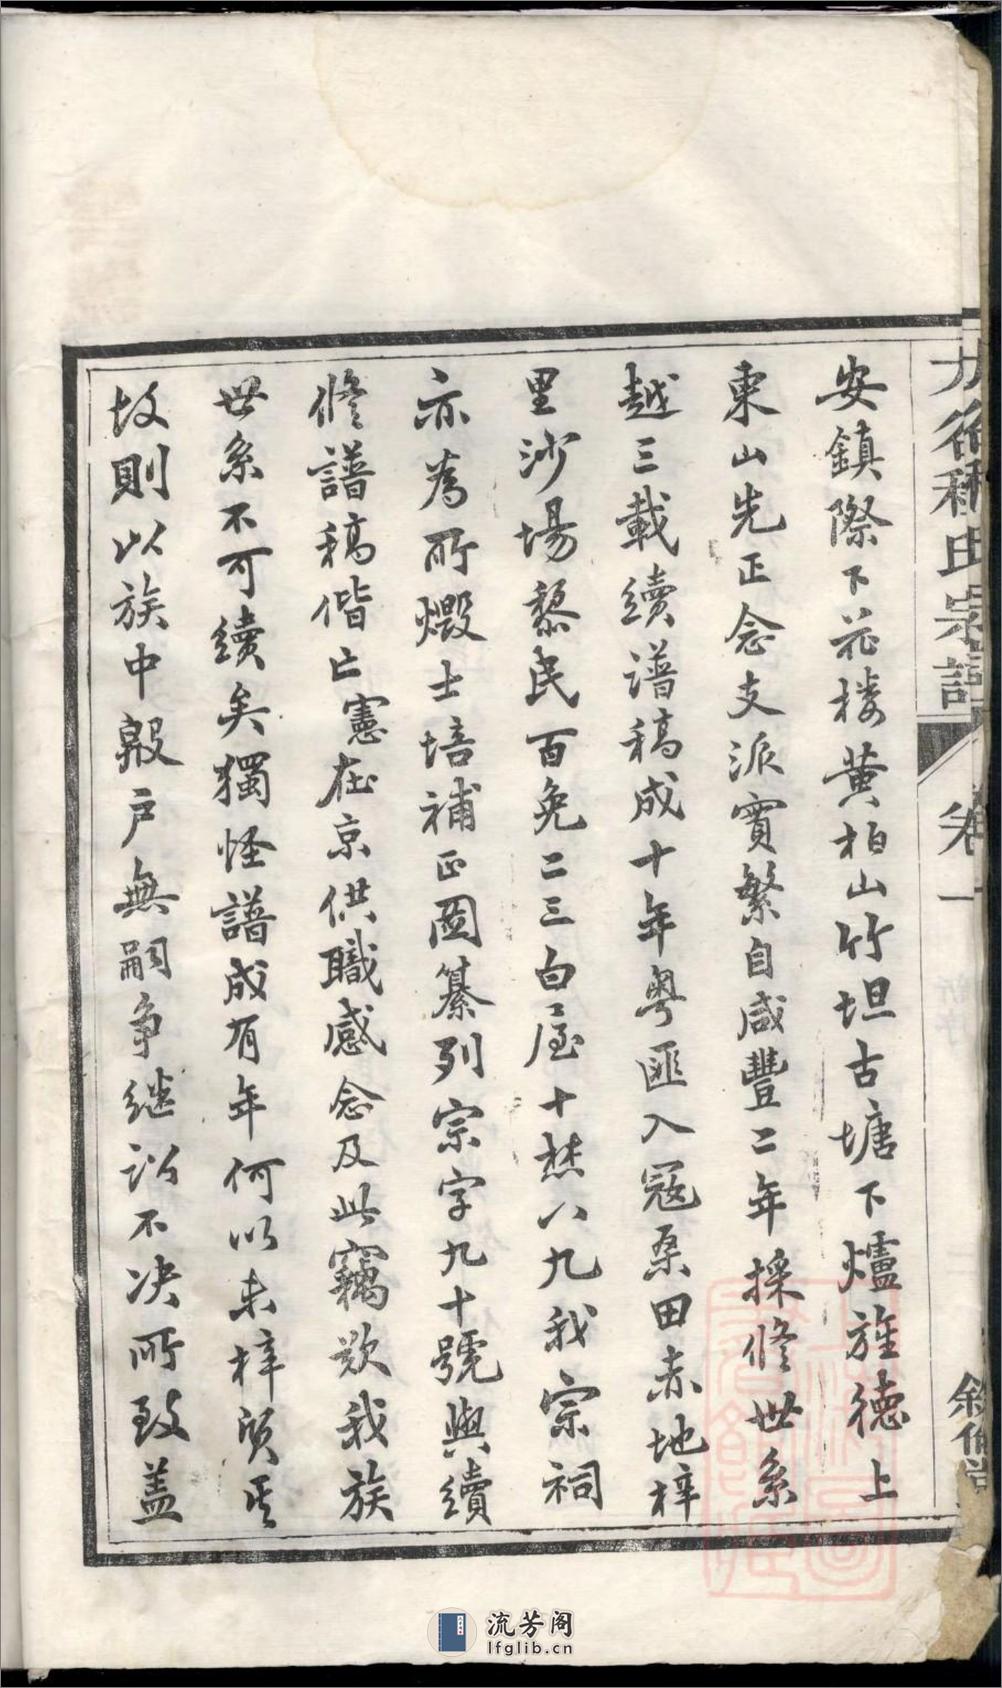 安鎮際下花楼黄柏山竹坦古塘下爐旌德上
東山先正念支派實繁自咸豐二年採修世系
越三載續譜稿成十年粤匪入冦桑田赤地梓
里沙場黎民百免二三白屋十燃八九我宗祠
亦為所燬士培補正圖纂列宗字九十號與續
修譜稿偕亡憲在京供職感念及此竊歎我族
世系不可續矣獨怪譜成有年何以未梓質其
故則以族中殷户無嗣争継訟不决所致盖
氏宗譜
卷一
流芳阁
lfglib.cn